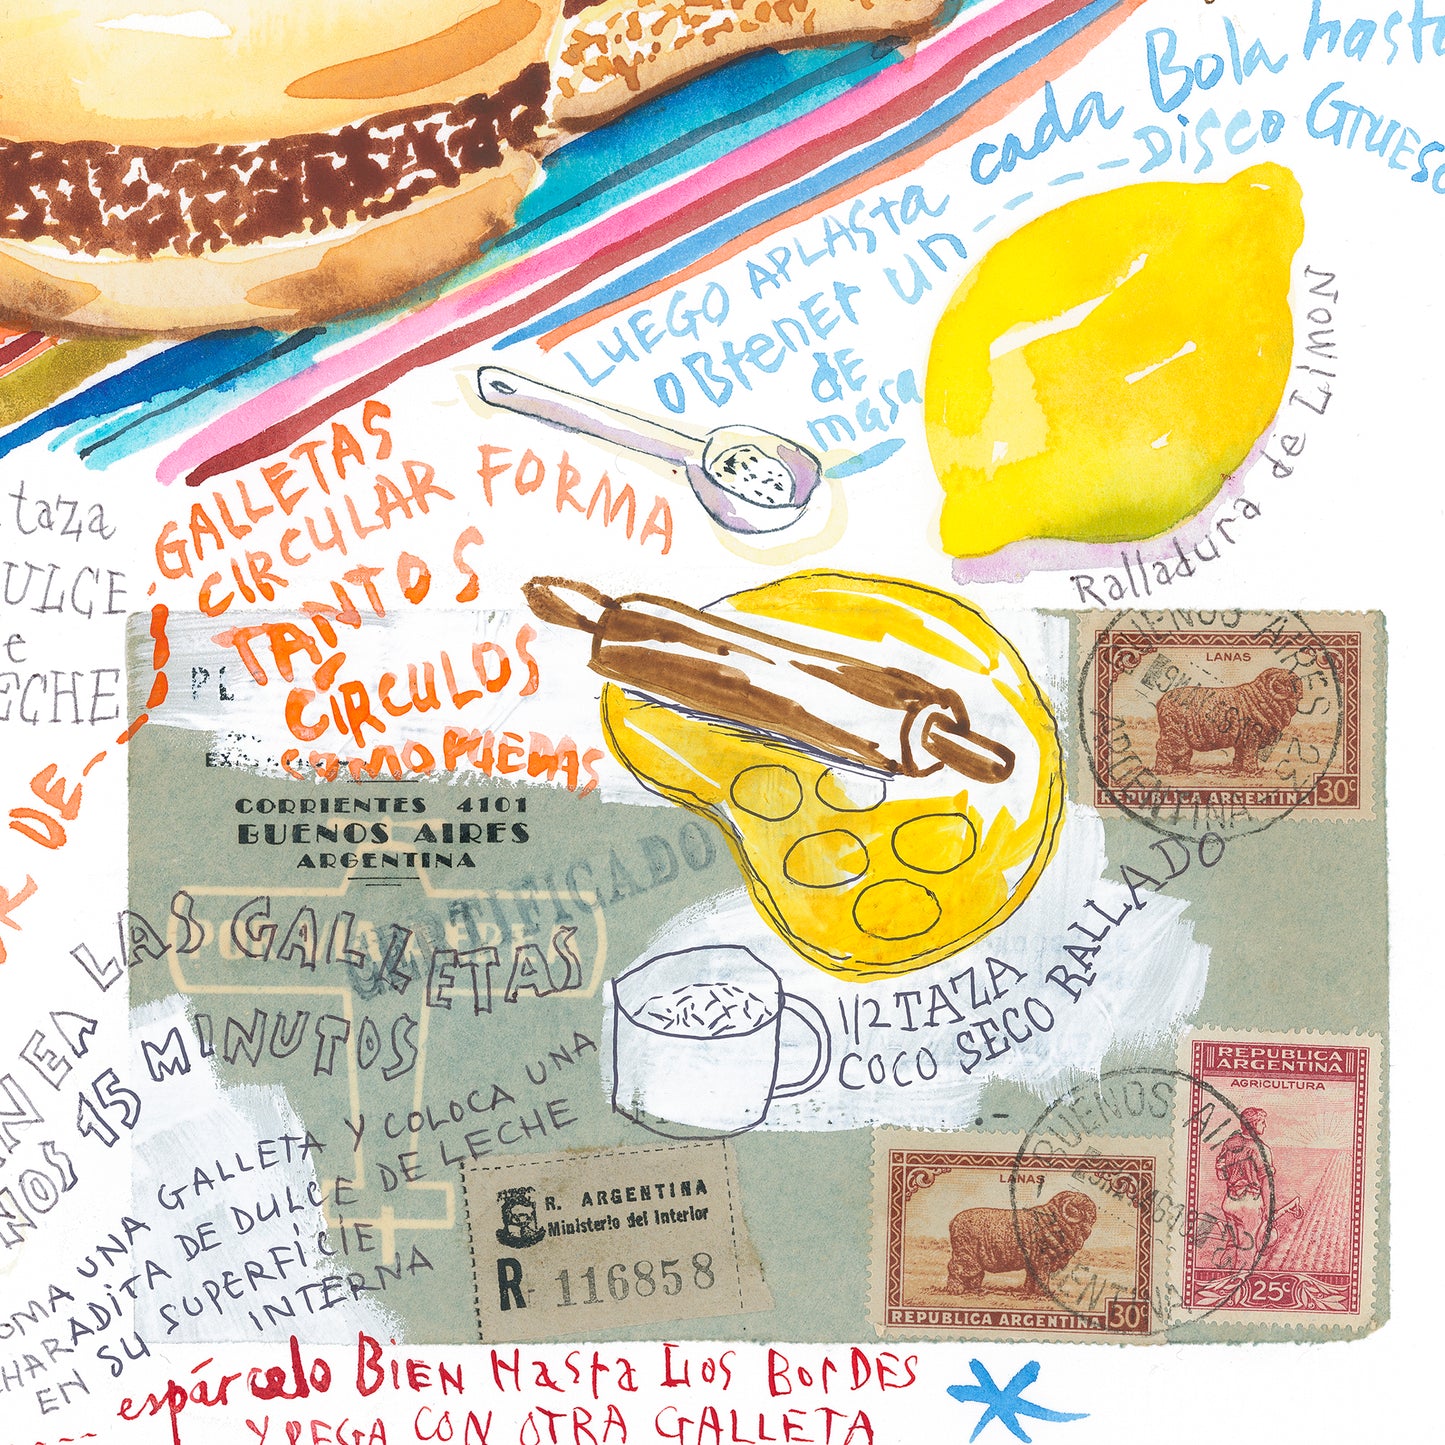 LUEGO APLASTA cada Bola hasta
obtener un --- DISCO GRUESO
de
masa
Ralladura de Limon
GALLETAS
CIRCULAR FORMA
TANTOS
CIRCULOS
COMO PUEDAS
taza
DULCE
e
LECHE
DE
CORRIENTES 4101
BUENOS AIRES
ARGENTINA
CERTIFICADO
LAS GALLETAS
15 MINUTOS
1/2 TAZA
COCO SECO RALLADO
UNA GALLETA Y COLOCA UNA
CHARADITA DE DULCE DE LECHE
EN SU SUPERFICIE
INTERNA
R. ARGENTINA
Ministerio del Interior
R 116858
espárcelo BIEN Hasta Los BorDES
Y PEGA CON OTRA GALLETA
LANAS
REPUBLICA ARGENTINA 30c
BUENOS AIRES
ARGENTINA
REPUBLICA
ARGENTINA
AGRICULTURA
25c
LANAS
REPUBLICA ARGENTINA 30c
BUENOS AIRES
ARGENTINA